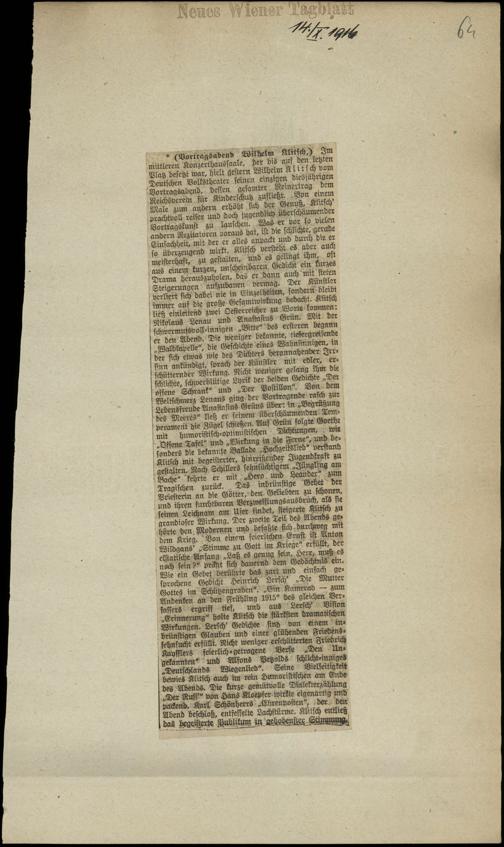 Neues Wiener Tagblatt
14./IX. 1916
64
* (Vortragsabend Wilhelm Klitsch.) Im
mittleren Konzerthaussaale, der bis auf den letzten
Platz besetzt war, hielt gestern Wilhelm Klitsch vom
Deutschen Volkstheater seinen einzigen diesjährigen
Vortragsabend, dessen gesamter Reinertrag dem
Reichsverein für Kinderschutz zufließt. Von einem
Male zum andern erhöht sich der Genuß, Klitsch'
prachtvoll reifer und doch jugendlich überschäumender
Vortragskunst zu lauschen. Was er vor so vielen
andern Rezitatoren voraus hat, ist die schlichte, gerade
Einfachheit, mit der er alles anpackt und durch die er
so überzeugend wirkt. Klitsch versteht es aber auch
meisterhaft, zu gestalten, und es gelingt ihm, oft
aus einem kurzen, unscheinbaren Gedicht ein kurzes
Drama herauszuholen, das er dann auch mit steten
Steigerungen aufzubauen vermag. Der Künstler
verliert sich dabei nie in Einzelheiten, sondern bleibt
immer auf die große Gesamtwirkung bedacht. Klitsch
ließ einleitend zwei Oesterreicher zu Worte kommen:
Nikolaus Lenau und Anastasius Grün. Mit der
schwermutsvoll-innigen „Bitte" des ersteren begann
er den Abend. Die weniger bekannte, tiefergreifende
„Waldkapelle", die Geschichte eines Wahnsinnigen, in
der sich etwas wie des Dichters herannahender Irr-
sinn ankündigt, sprach der Künstler mit edler, er-
schütternder Wirkung. Nicht weniger gelang ihm die
schlichte, schwerblütige Lyrik der beiden Gedichte „Der
offene Schrank" und „Der Postillon". Von dem
Weltschmerz Lenaus ging der Vortragende rasch zur
Lebensfreude Anastasius Grüns über: in „Begrüßung
des Meeres" ließ er seinem überschäumenden Tem-
perament die Zügel schießen. Auf Grün folgte Goethe
mit humoristisch-optimistischen Dichtungen, wie
„Offene Tafel" und „Wirkung in die Ferne", und be-
sonders die bekannte Ballade „Hochzeitslied" verstand
Klitsch mit begeisterter, hinreißender Jugendkraft zu
gestalten. Nach Schillers sehnsüchtigem „Jüngling am
Bache" kehrte er mit „Hero und Leander" zum
Tragischen zurück. Das inbrünstige Gebet der
Priesterin an die Götter, den Geliebten zu schonen,
und ihren furchtbaren Verzweiflungsausbruch, als sie
seinen Leichnam am Ufer findet, steigerte Klitsch zu
grandioser Wirkung. Der zweite Teil des Abends ge-
hörte den Modernen und befaßte sich durchweg mit
dem Krieg. Von einem feierlichen Ernst ist Anton
Wildgans' „Stimme zu Gott im Kriege" erfüllt, der
ekstatische Anfang „Laß es genug sein, Herr, muß es
noch sein?" prägt sich dauernd dem Gedächtnis ein.
Wie ein Gebet berührte das zart und einfach ge-
sprochene Gedicht Heinrich Lersch' „Die Mutter
Gottes im Schützengraben". „Ein Kamerad — zum
Andenken an den Frühling 1915" des gleichen Ver-
fassers ergriff tief, und aus Lersch' Vision
„Erinnerung" holte Klitsch die stärksten dramatischen
Wirkungen. Lersch' Gedichte sind von einem in-
brünstigen Glauben und einer glühenden Friedens-
sehnsucht erfüllt. Nicht weniger erschütterten Friedrich
Kayßlers feierlich-getragene Verse „Den Un-
gekannten" und Alfons Petzolds schlicht-inniges
„Deutschlands Wiegenlied". Seine Vielseitigkeit
bewies Klitsch auch im rein Humoristischen am Ende
des Abends. Die kurze gemütvolle Dialekterzählung
„Der Russ'" von Hans Kloepfer wirkte eigenartig und
packend. Karl Schönherrs „Ehrenposten", der den
Abend beschloß, entfesselte Lachstürme. Klitsch entließ
das begeisterte Publikum in gehobenster Stimmung.